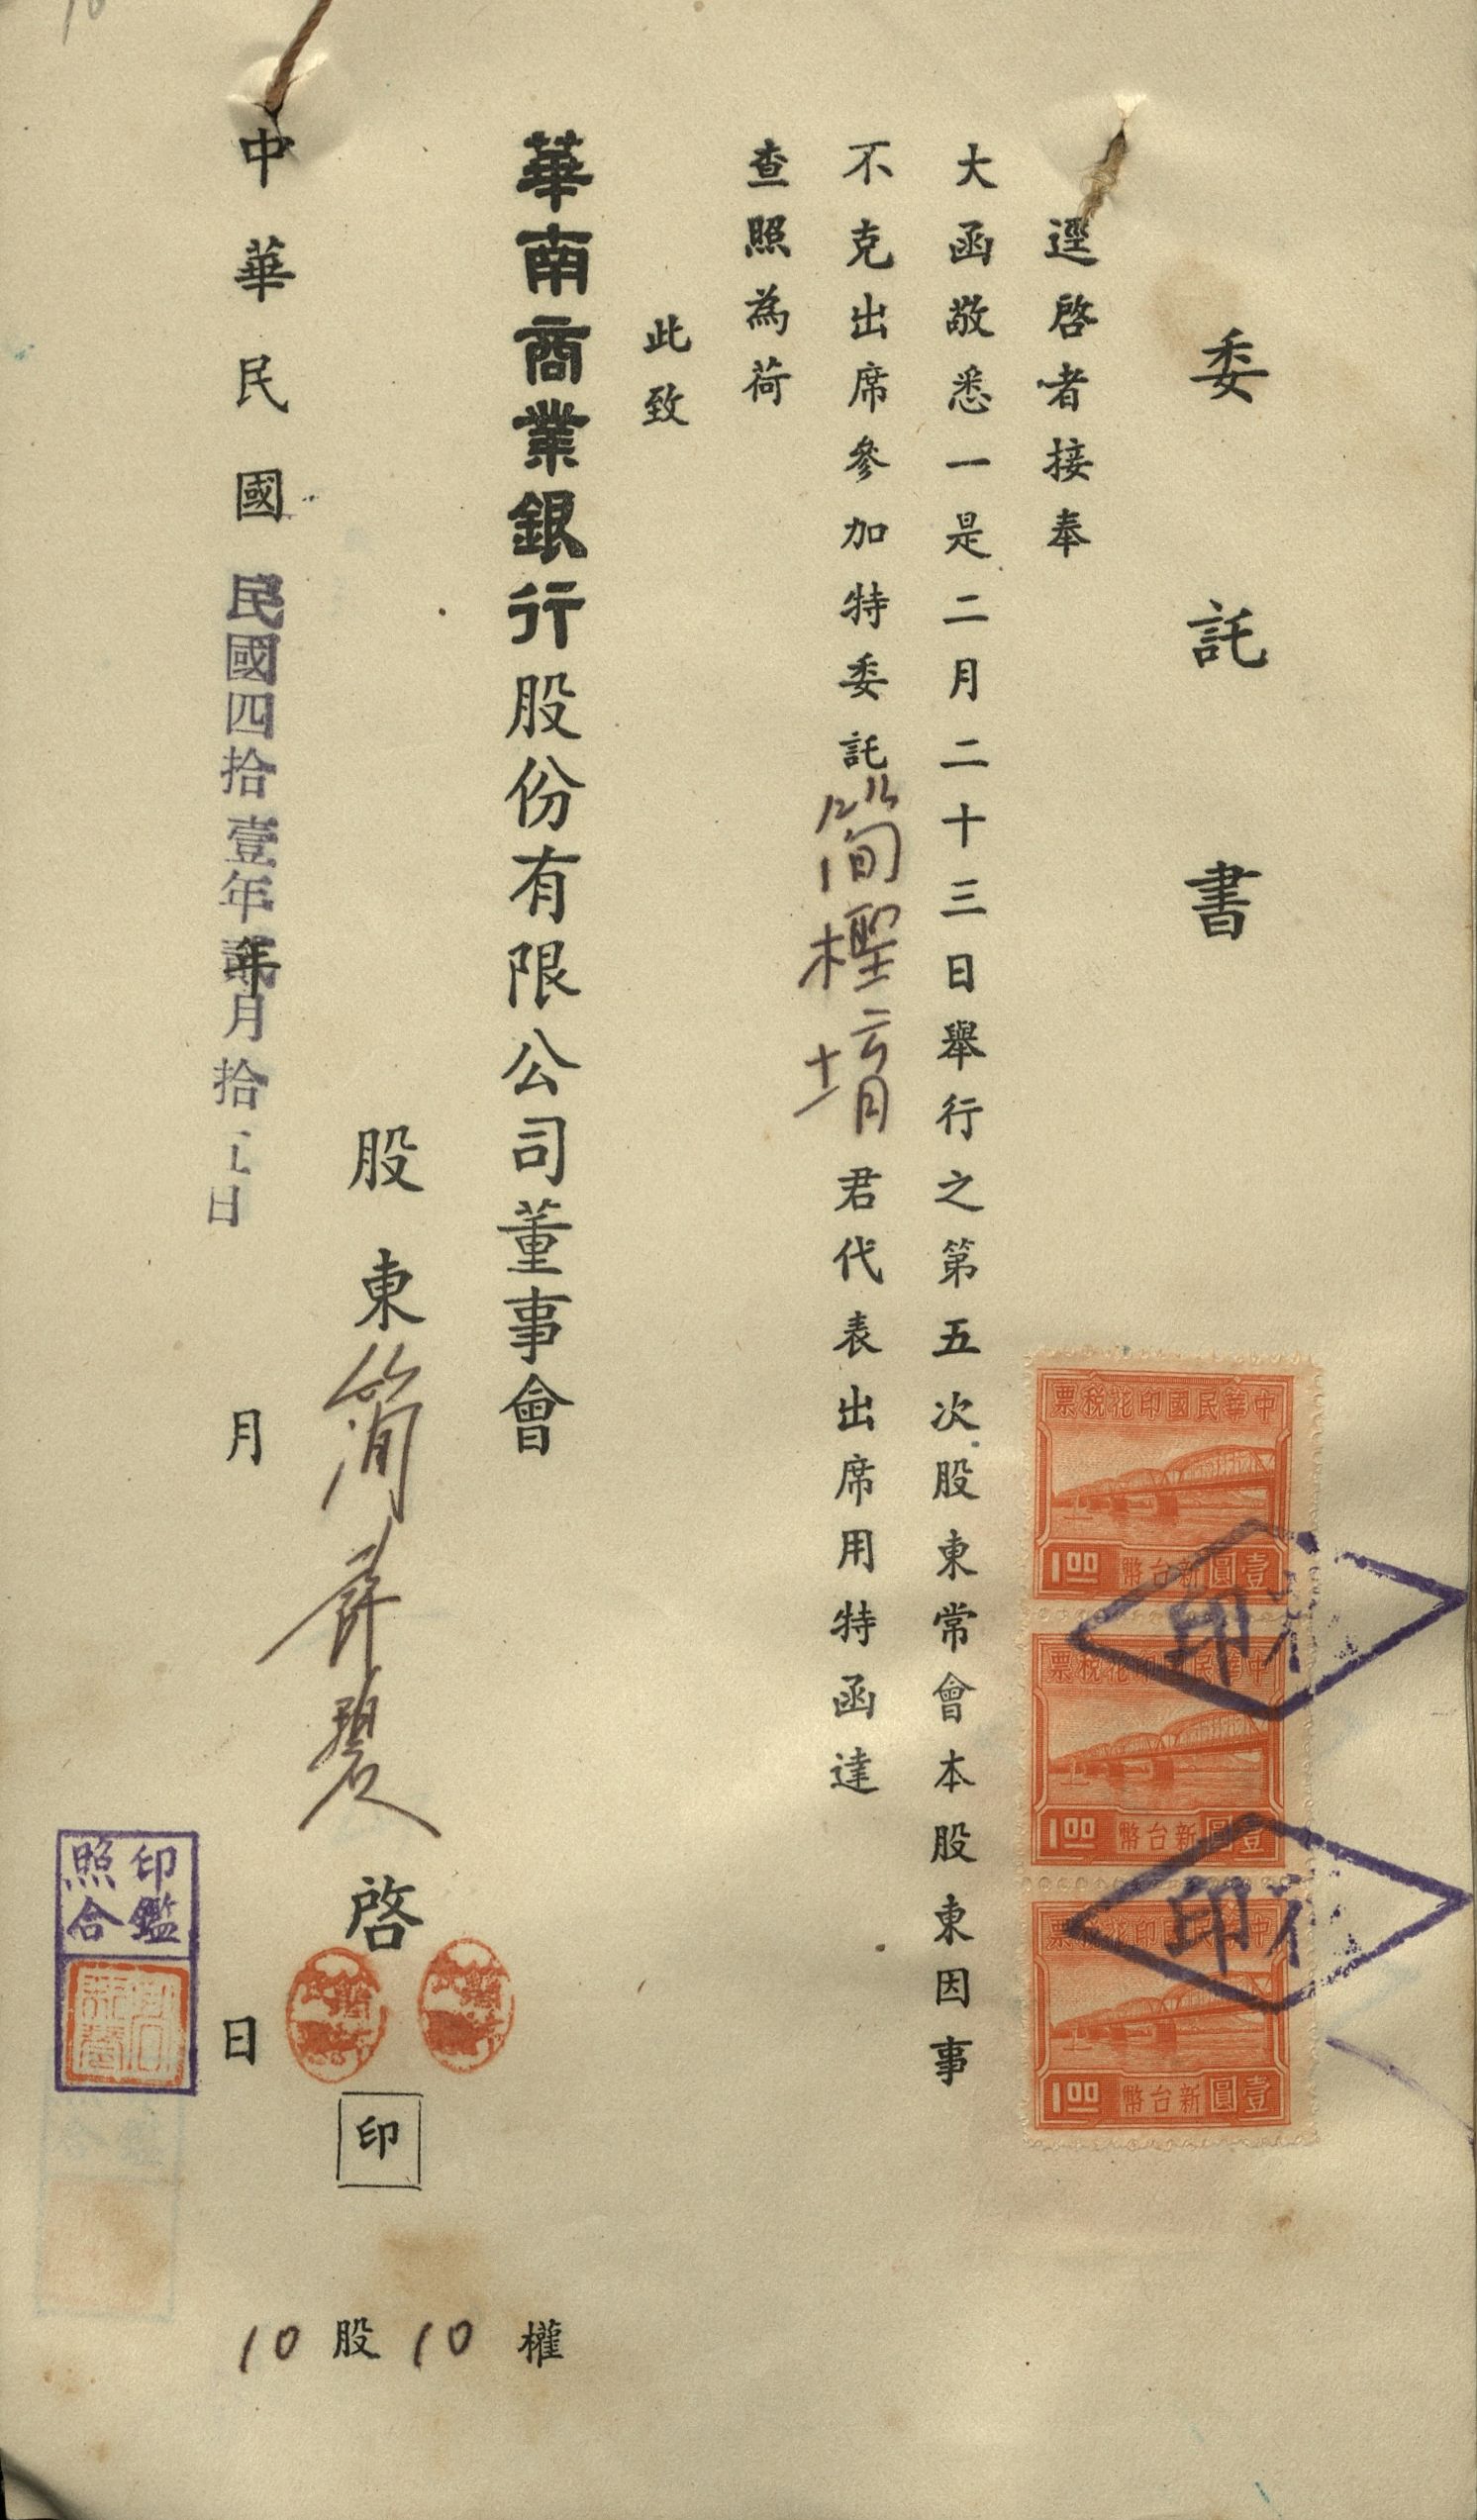 委託書
逕啓者接奉
大函敬悉一是二月二十三日舉行之第五次股東常會本股東因事
不克出席參加特委託簡檉堉君代表出席用特函達
查照為荷
此致
華南商業銀行股份有限公司董事會
股東簡薛碧 啓 印
中華民國 年 月 日
民國四拾壹年 月拾 日
10股10權
中華民國印花稅票
壹圓新台幣
1.00
中華民國印花稅票
壹圓新台幣
1.00
中華民國印花稅票
壹圓新台幣
1.00
印花
印花
印鑑
照合